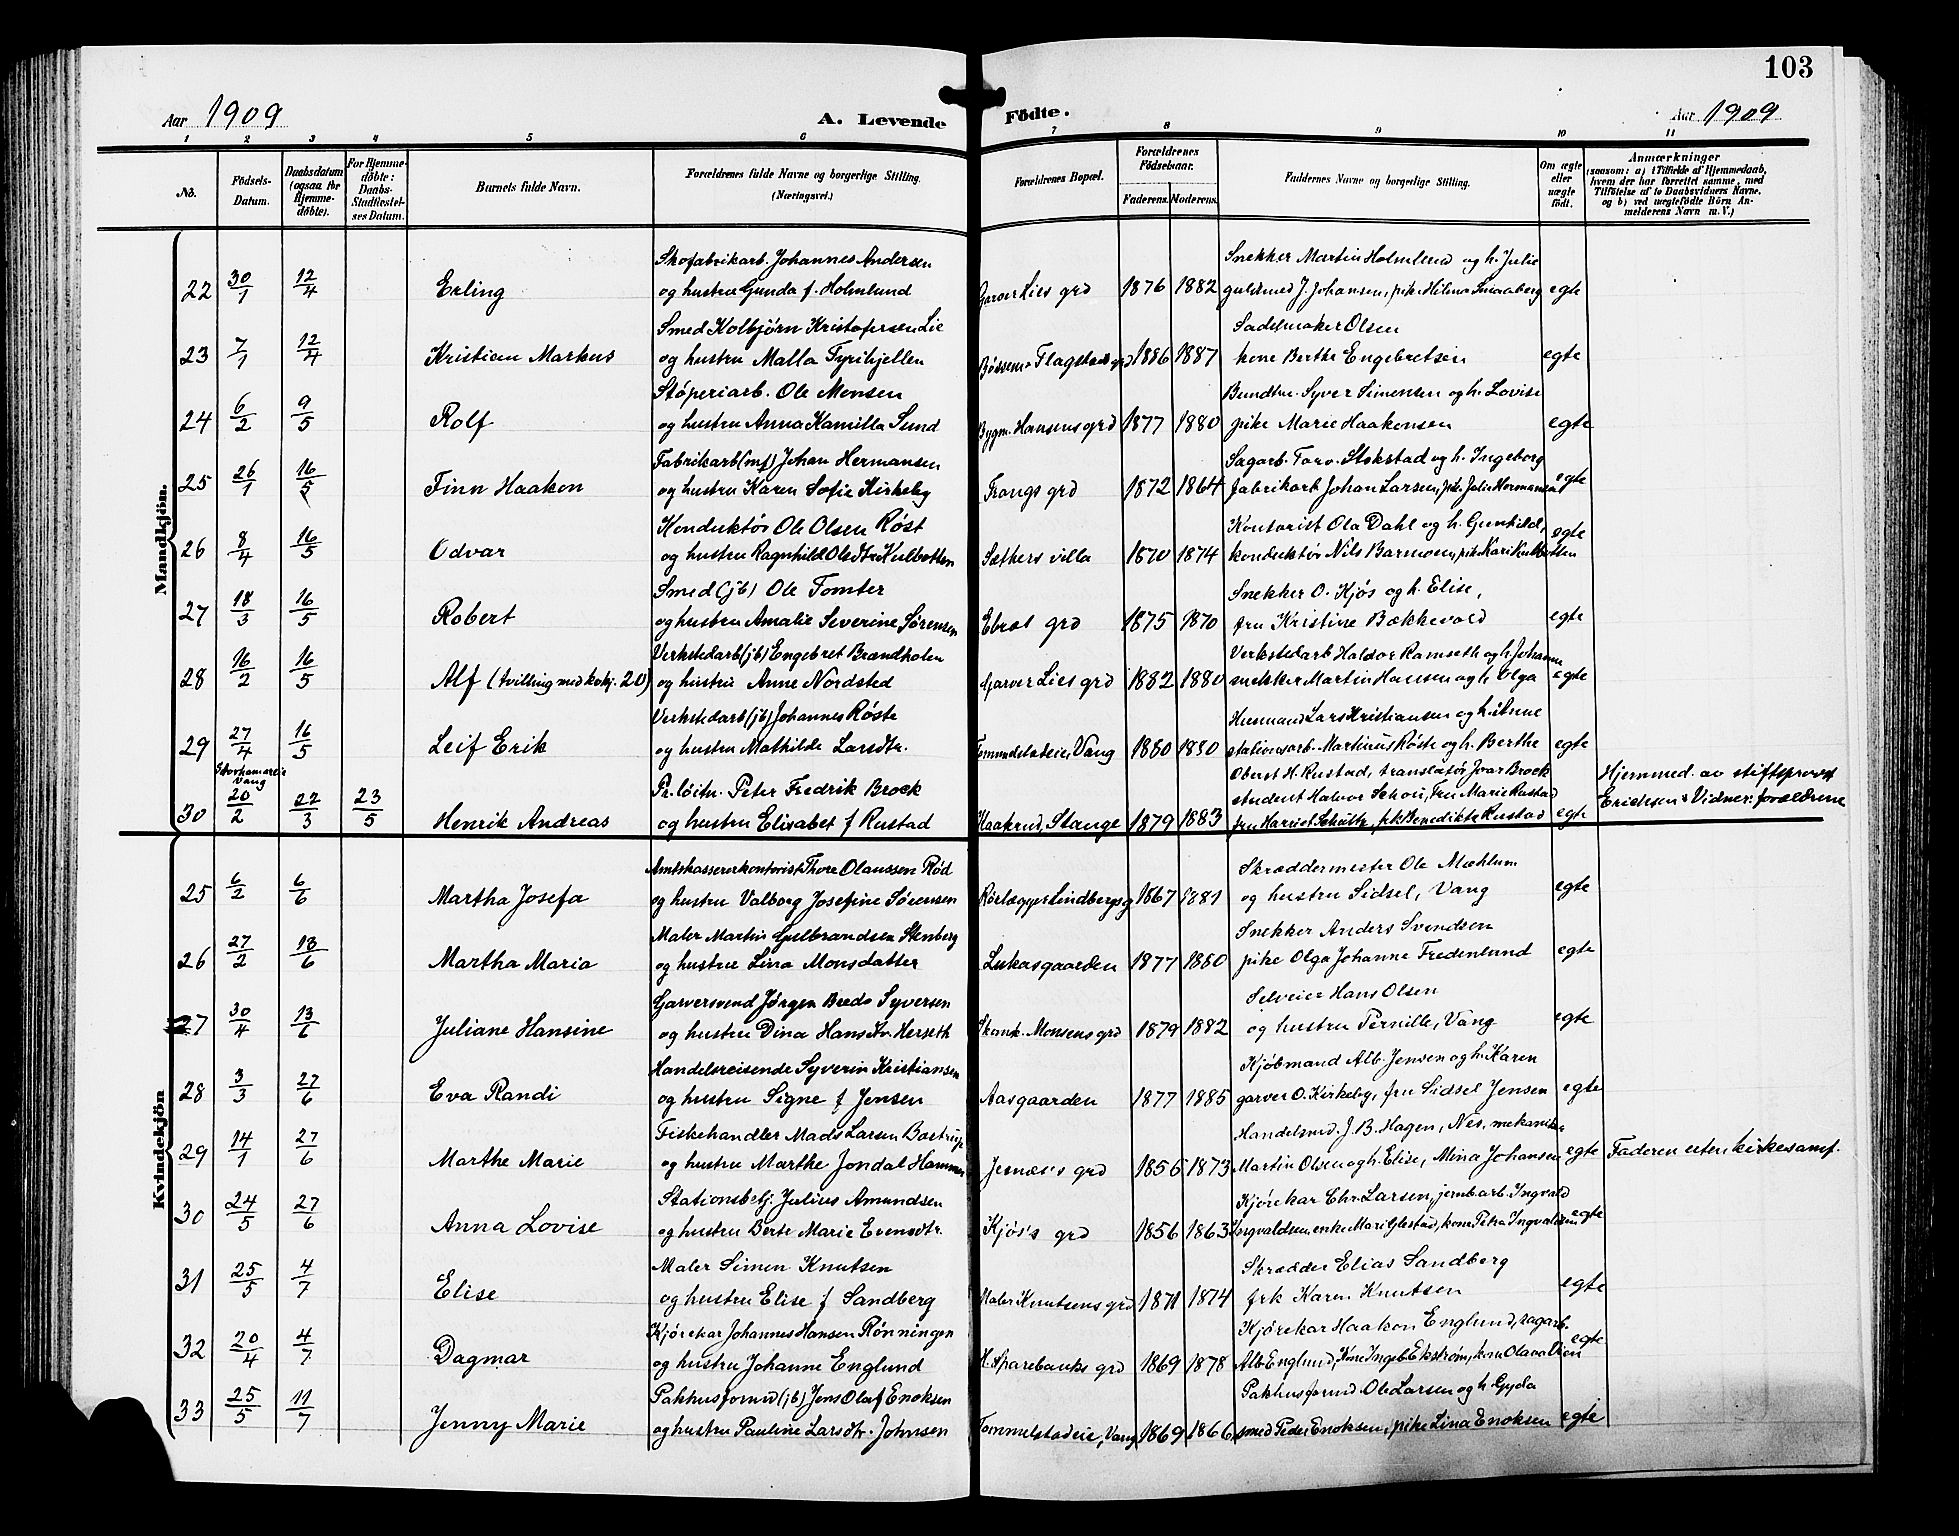 103
Aar 1909
A. Levende Födte.
Aar 1909
1 2 3 4 5 6 7 8 9 10 11
No.
Födsels-Datum.
Daabsdatum (ogsaa for Hjemmedöbte).
For Hjemmedöbte: Daabs-Stadfæstelses Datum.
Barnets fulde Navn.
Forældrenes fulde Navne og borgerlige Stilling. (Næringsvei.)
Forældrenes Bopæl.
Forældrenes Födselsaar.
Faderens. Moderens.
Faddernes Navne og borgerlige Stilling.
Om ægte eller uægte födt.
Anmærkninger (saasom: a) i Tilfælde af Hjemmedaab, hvem der har forrettet samme, med Tilföielse af to Daabsvidners Navne, og b) ved uægtefödte Börn Anmelderens Navn m. V.)
Mandkjön.
Skofabrikarb. Johannes Andersen Snekker Martin Holmlund og h. Julie
22 30/1 12/4 Erling og hustru Gunda f. Holmlund Garver Lies grd 1876 1882 guldsmed J. Johansen, pike Hilma Smaaberg egte
Smed Kolbjørn Kristofersen Lie Sadelmaker Olsen
23 7/1 12/4 Kristian Markus og hustru Malla Tyrihjellen Bøssem. Flagstads grd 1886 1887 kone Berthe Engebretsen egte
Støperiarb. Ole Monsen Bundtm. Syver Simensen og h. Lovise
24 6/2 9/5 Rolf og hustru Anna Kamilla Sund Bygm. Hansens grd 1877 1880 pike Marie Haakensen egte
Fabrikarb (mf) Johan Hermansen Sagarb. Torv. Stokstad og h. Ingeborg
25 26/1 16/5 Finn Haakon og hustru Karen Sofie Kirkeby Frangs grd 1872 1864 fabrikarb Johan Larsen, pik. Julie Hermansen egte
Konduktör Ole Olsen Røst Kontorist Ola Dahl og h. Gunhild,
26 8/4 16/5 Odvar og hustru Ragnhild Olsdtr Kulbotten Sæthers villa 1870 1874 konduktör Nils Barmoen, pik Kari Kulbotten egte
Smed (jb) Ole Tomter Snekker O. Kjøs og h. Elise,
27 18/3 16/5 Robert og hustru Amalie Severine Sørensen Ebral grd 1875 1870 fru Kristine Bækkevold egte
Verkstedarb (jb) Engebret Brændholen Verkstedarb Haldor Ramseth og h. Johanne
28 16/2 16/5 Alf (tvilling med kvkj. 20) og hustru Anne Nordsted Garver Lies grd 1882 1880 snekker Martin Hansen og h Olga egte
Verkstedarb (jb) Johannes Røste Husmand Lars Kristiansen og h. Anne
29 27/4 16/5 Leif Erik og hustru Mathilde Larsdtr. Tommelstadeie, Vang 1880 1880 stationsarb. Martinus Røste og h. Berthe egte
Storhamareie Vang Pr. löitn. Peter Fredrik Brock Oberst H. Rustad, translatör Ivar Brock Hjemmed. av stiftsprovst
student Halvor Schou, Fru Marie Rustad
30 20/2 22/3 23/5 Henrik Andreas og hustru Elisabet f Rustad Haakrud, Stange 1879 1883 fru Harriet Schultz, frk Benedikte Rustad egte Erichsen. Vidner: forældrene
Kvindekjön
Amtskassererkontorist Thore Olaussen Röd Skræddermester Ole Mæhlum
25 6/2 6/6 Martha Josefa og hustru Valborg Josefine Sørensen Rörlægger Lindbergs g 1867 1881 og hustru Sidsel, Vang egte
Maler Martin Gulbrandsen Stenberg Snekker Anders Svendsen
26 27/2 13/6 Martha Maria og hustru Lina Monsdatter Lukasgaarden 1877 1880 pike Olga Johanne Fredenlund egte
Garversvend Jørgen Bredo Syversen Selveier Hans Olsen
27 30/4 13/6 Juliane Hansine og hustru Dina Hansdtr Herseth Skomk. Monsens grd 1879 1882 og hustru Pernille, Vang egte
Handelsreisende Syverin Kristiansen Kjöbmand Alb. Jensen og h. Karen
28 3/3 27/6 Eva Randi og hustru Signe f Jensen Aasgaarden 1877 1885 garver O. Kirkeby, fru Sidsel Jensen egte
Fiskehandler Mads Larsen Bastrup Handelsmd. J. B. Hagen, Nes, mekaniker
29 14/1 27/6 Marthe Marie og hustru Marthe Jondal Hammer Jernæs's grd 1856 1873 Martin Olsen og h. Elise, Mina Johansen egte Faderen uten kirkesamf.
Stationsbetj. Julius Amundsen Kjörekar Chr. Larsen, jernb.arb. Ingvald
30 24/5 27/6 Anna Lovise og hustru Berte Marie Evensdtr. Kjøs's grd 1856 1863 Torgvaldsen, enke Mari Glestad, kone Petra Ingvaldsen egte
Maler Simen Knutsen Skrædder Elias Sandberg
31 25/5 4/7 Elise og hustru Elise f Sandberg Maler Knutsens grd 1871 1874 frk Karen Knutsen egte
Kjörekar Johannes Hansen Rönningen Kjörekar Haakon Englund, sagarb.
32 20/4 4/7 Dagmar og hustru Johanne Englund H. Sparebanks grd 1869 1878 Alb Englund, kone Ingeb. Ekström, kone Olava Lien egte
Pakhusformd (jb) Jens Olaf Enoksen Pakhusformd Ole Larsen og h. Gyda
33 25/5 11/7 Jenny Marie og hustru Pauline Larsdtr. Johnsen Tommelstadeie, Vang 1869 1866 smed Peder Enoksen, pike Lina Enoksen egte